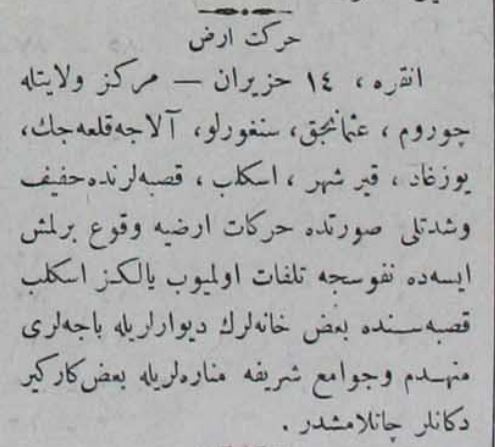 حركت ارض
انقره ، ١٤ حزيران — مركز ولايتله
چوروم ، عثمانجق ، سنغورلو ، آلاجه‌قلعه‌جك ،
يوزغاد ، قير شهر ، اسكلب ، قصبه‌لرنده‌حفيف
وشدتلى صورتده حركات ارضيه وقوع برلمش
ايسه‌ده نفوسجه تلفات اولميوب يالكز اسكلب
قصبه‌سنده بعض خانه‌لرك ديوارلريله باجه‌لرى
منهدم وجوامع شريفه مناره‌لريله بعض كاركير
دكانلر چاتلامشدر .